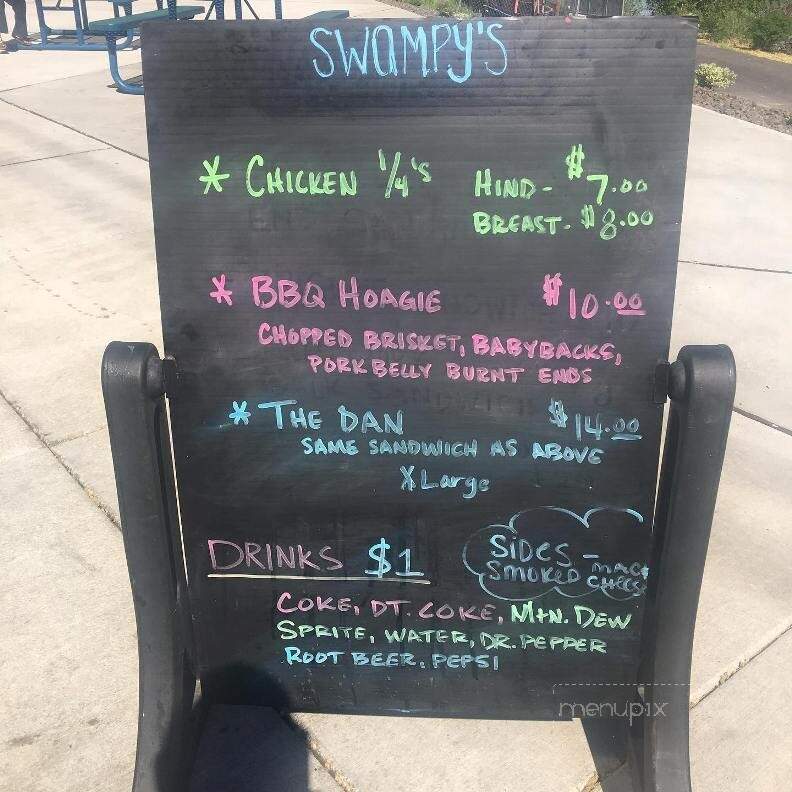 SWAMPY'S
* CHICKEN 1/4's HIND - $7.00
BREAST - $8.00
* BBQ HOAGIE $10.00
CHOPPED BRISKET, BABYBACKS,
PORK BELLY BURNT ENDS
* THE DAN $14.00
SAME SANDWICH AS ABOVE
X Large
DRINKS $1
SIDES -
SMOKED MAC &
CHEESE
COKE, DT. COKE, MtN. DEW
SPRITE, WATER, DR. PEPPER
ROOT BEER, PEPSI
menupix